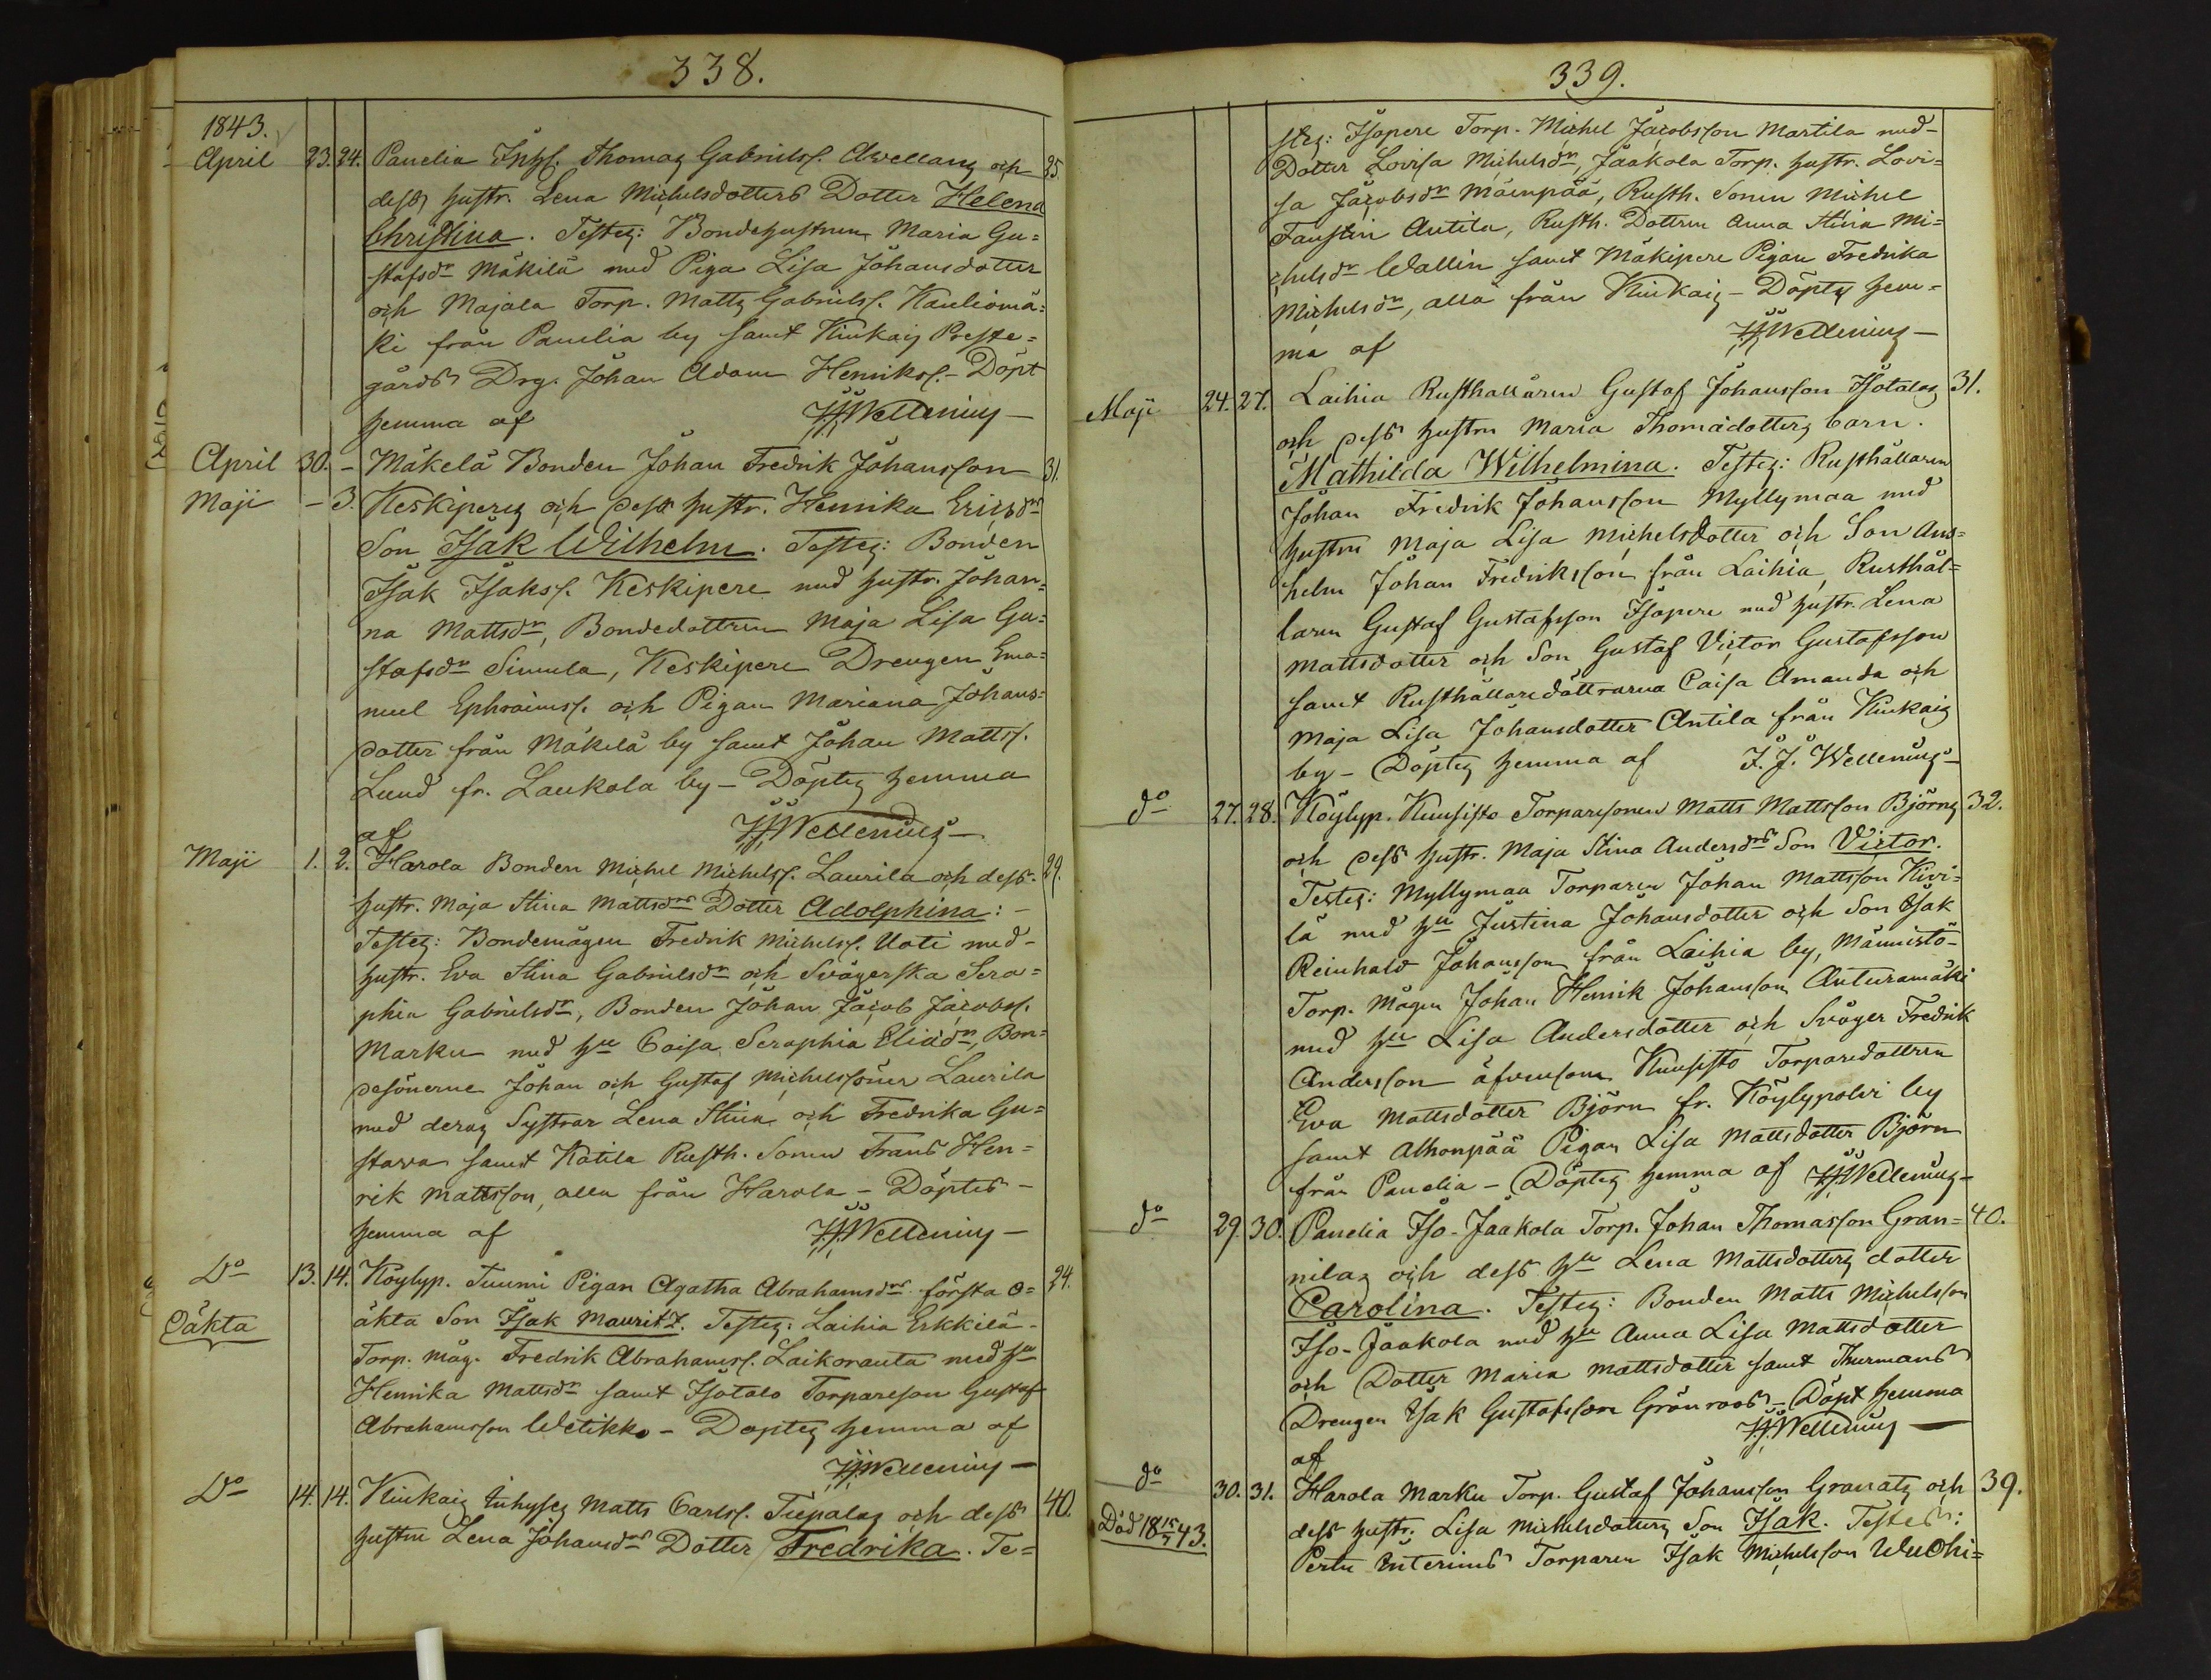 338.
1843.
April 23. 24. Panelia Inhs. Thomas Gabrielss. Awellans och 25.
dess hustr. Lena Michelsdotters Dotter Helena
Christina. Testes: Bondehustrun Maria Gu=
stafsdr Mäkilä med Piga Lisa Johansdotter
och Majala Torp. Matts Gabrielss. Kauliomä=
ki från Panelia by samt Kiukais Preste=
gårds Drg. Johan Adam Henrikss. - Döpt
hemma af JJWellenius -
April 30. - Mäkelä Bonden Johan Fredrik Johansson 31.
Maji - 3. Keskiperes och dess hustr. Henrika Ericsdrs
Son Isak Wilhelm. Testes: Bonden
Isak Isakss. Keskipere med hustr. Johan=
na Mattsdr, Bondedottren Maja Lisa Gu=
stafsdr Simula, Keskipere Drengen Ema=
nuel Ephraimss. och Pigan Mariana Johans=
dotter från Mäkelä by samt Johan Mattss.
Lund fr. Laukola by - Döptes hemma
af JJWellenius -
Maji 1. 2. Harola Bonden Michel Michelss. Laurila och dess 29.
hustr. Maja Stina Mattsdrs Dotter Adolphina: -
Testes: Bondemågen Fredrik Michelss. Uoti med -
hustr. Eva Stina Gabrielsdr och Svägerska Sera=
phia Gabrielsdr, Bonden Johan Jacob Jacobss.
Marku med hu Caisa Seraphia Eliædr, Bon=
desönerne Johan och Gustaf Michelssöner Laurila
med deras Systrar Lena Stina och Fredrika Gu=
stava samt Katila Rusth. Sonen Frans Hen=
rik Mattsson, alla från Harola - Döptes -
hemma af JJWellenius -
Do 13. 14. Köylyp. Tuumi Pigan Agatha Abrahamsdrs första o= 24.
Oäkta äkta Son Isak Mauritz. Testes: Laihia Erkkilä -
Torp. måg. Fredrik Abrahamss. Laikoranta med hu
Henrika Mattsdr samt Isotalo Torpareson Gustaf
Abrahamsson Wetikko - Döptes hemma af
JJWellenius -
Do 14. 14. Kiukais Inhyses Matts Carlss. Tiepalas och dess 40.
hustru Lena Johansdrs Dotter Fredrika. Te=
339.
stes: Isopere Torp. Michel Jacobsson Martila med -
Dotter Lovisa Michelsdr, Jaakola Torp. hustr. Lovi=
sa Jacobsdr Mäenpää, Rusth. Sonen Michel
Faustin Antila, Rusth. Dottren Anna Stina Mi=
chelsdr Wallin samt Mäkipere Pigan Fredrika
Michelsdr, alla från Kiukais - Döptes hem=
ma af JJWellenius -
Maji 24. 27. Laihia Rusthållaren Gustaf Johansson Isotalos 31.
och dess hustru Maria Thomædotters barn.
Mathilda Wilhelmina. Testes: Rusthållaren
Johan Fredrik Johansson Myllymaa med
hustru Maja Lisa Michelsdotter och Son Ans=
helm Johan Fredriksson från Laihia, Rusthål=
laren Gustaf Gustafsson Isopere med hustr. Lena
Mattsdotter och Son Gustaf Victor Gustafsson
samt Rusthållaredöttrarna Caisa Amanda och
Maja Lisa Johansdotter Antila från Kiukais
by - Döptes hemma af J. J. Wellenius -
do 27. 28. Köylyp. Kuusisto Torparesonen Matts Mattsson Björns 32.
och dess hustr. Maja Stina Andersdrs Son Victor.
Testes: Myllymaa Torparen Johan Mattsson Kivi=
lä med hu Justina Johansdotter och Son Isak
Reinhald Johansson från Laihia by, Männistö -
Torp. Mågen Johan Henrik Johansson Anturamäki
med hu Lisa Andersdotter och Svåger Fredrik
Andersson äfvensom Kuusisto Torparedottren
Eva Mattsdotter Björn fr. Köylypolvi by
samt Alhonpää Pigan Lisa Mattsdotter Björn
från Panelia - Döptes hemma af JJWellenius -
do 29. 30. Panelia Iso-Jaakola Torp. Johan Thomasson Gran= 40.
nilas och dess hu Lena Mattsdotters dotter
Carolina. Testes: Bonden Matts Michelsson
Iso-Jaakola med hu Anna Lisa Mattsdotter
och Dotter Maria Mattsdotter samt Thurmans
Drengen Isak Gustafsson Grönroos - Döpt hemma
af JJWellenius -
do 30. 31. Harola Marku Torp. Gustaf Johansson Granats och 39.
Död 18 15/7 43. dess hustr. Lisa Michelsdotters Son Isak. Testes:
Pertu Interims Torparen Isak Michelsson Wuohi=